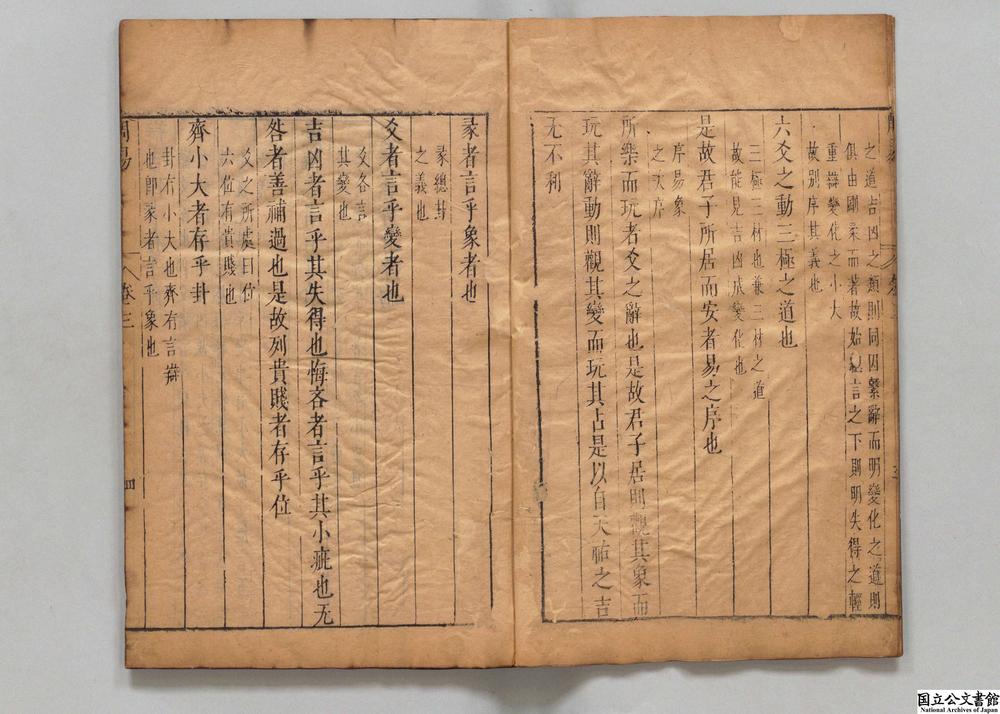 之道吉凶之類則同因繫辭而明變化之道則
俱由剛柔而著故始言之下則明失得之輕
重辯變化之小大
故別序其義也
六爻之動三極之道也
三極三材也兼三材之道
故能見吉凶成變化也
是故君子所居而安者易之序也
序易象
之次序
所樂而玩者爻之辭也是故君子居則觀其象而
玩其辭動則觀其變而玩其占是以自天祐之吉
无不利
彖者言乎象者也
彖總卦
之義也
爻者言乎變者也
爻各言
其變也
吉凶者言乎其失得也悔吝者言乎其小疵也无
咎者善補過也是故列貴賤者存乎位
爻之所處曰位
六位有貴賤也
齊小大者存乎卦
卦有小大也齊有言辯
也即彖者言乎象也
周易
卷三
四
国立公文書館
National Archives of Japan